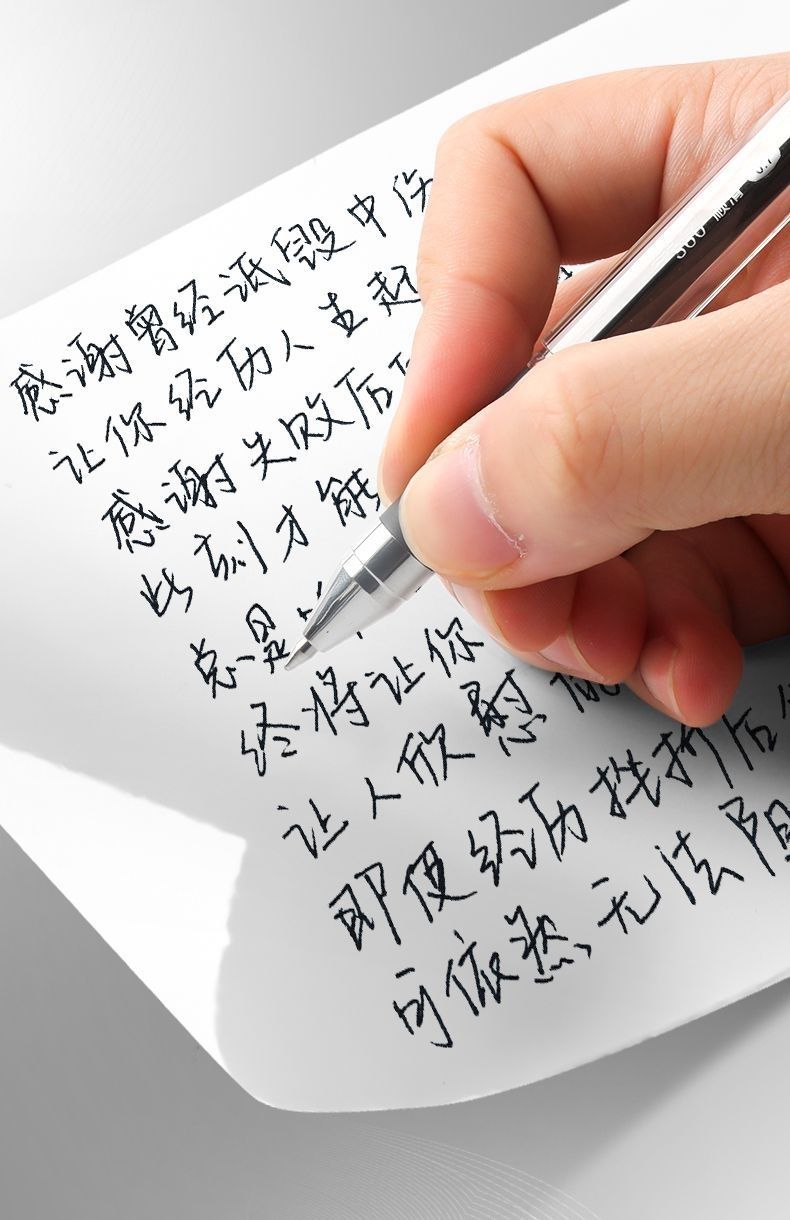 感谢曾经诋毁中伤
让你经历人生起
感谢失败后
此刻才能
总是
终将让你
让人欣慰
即便经历挫折后
可依然无法阻